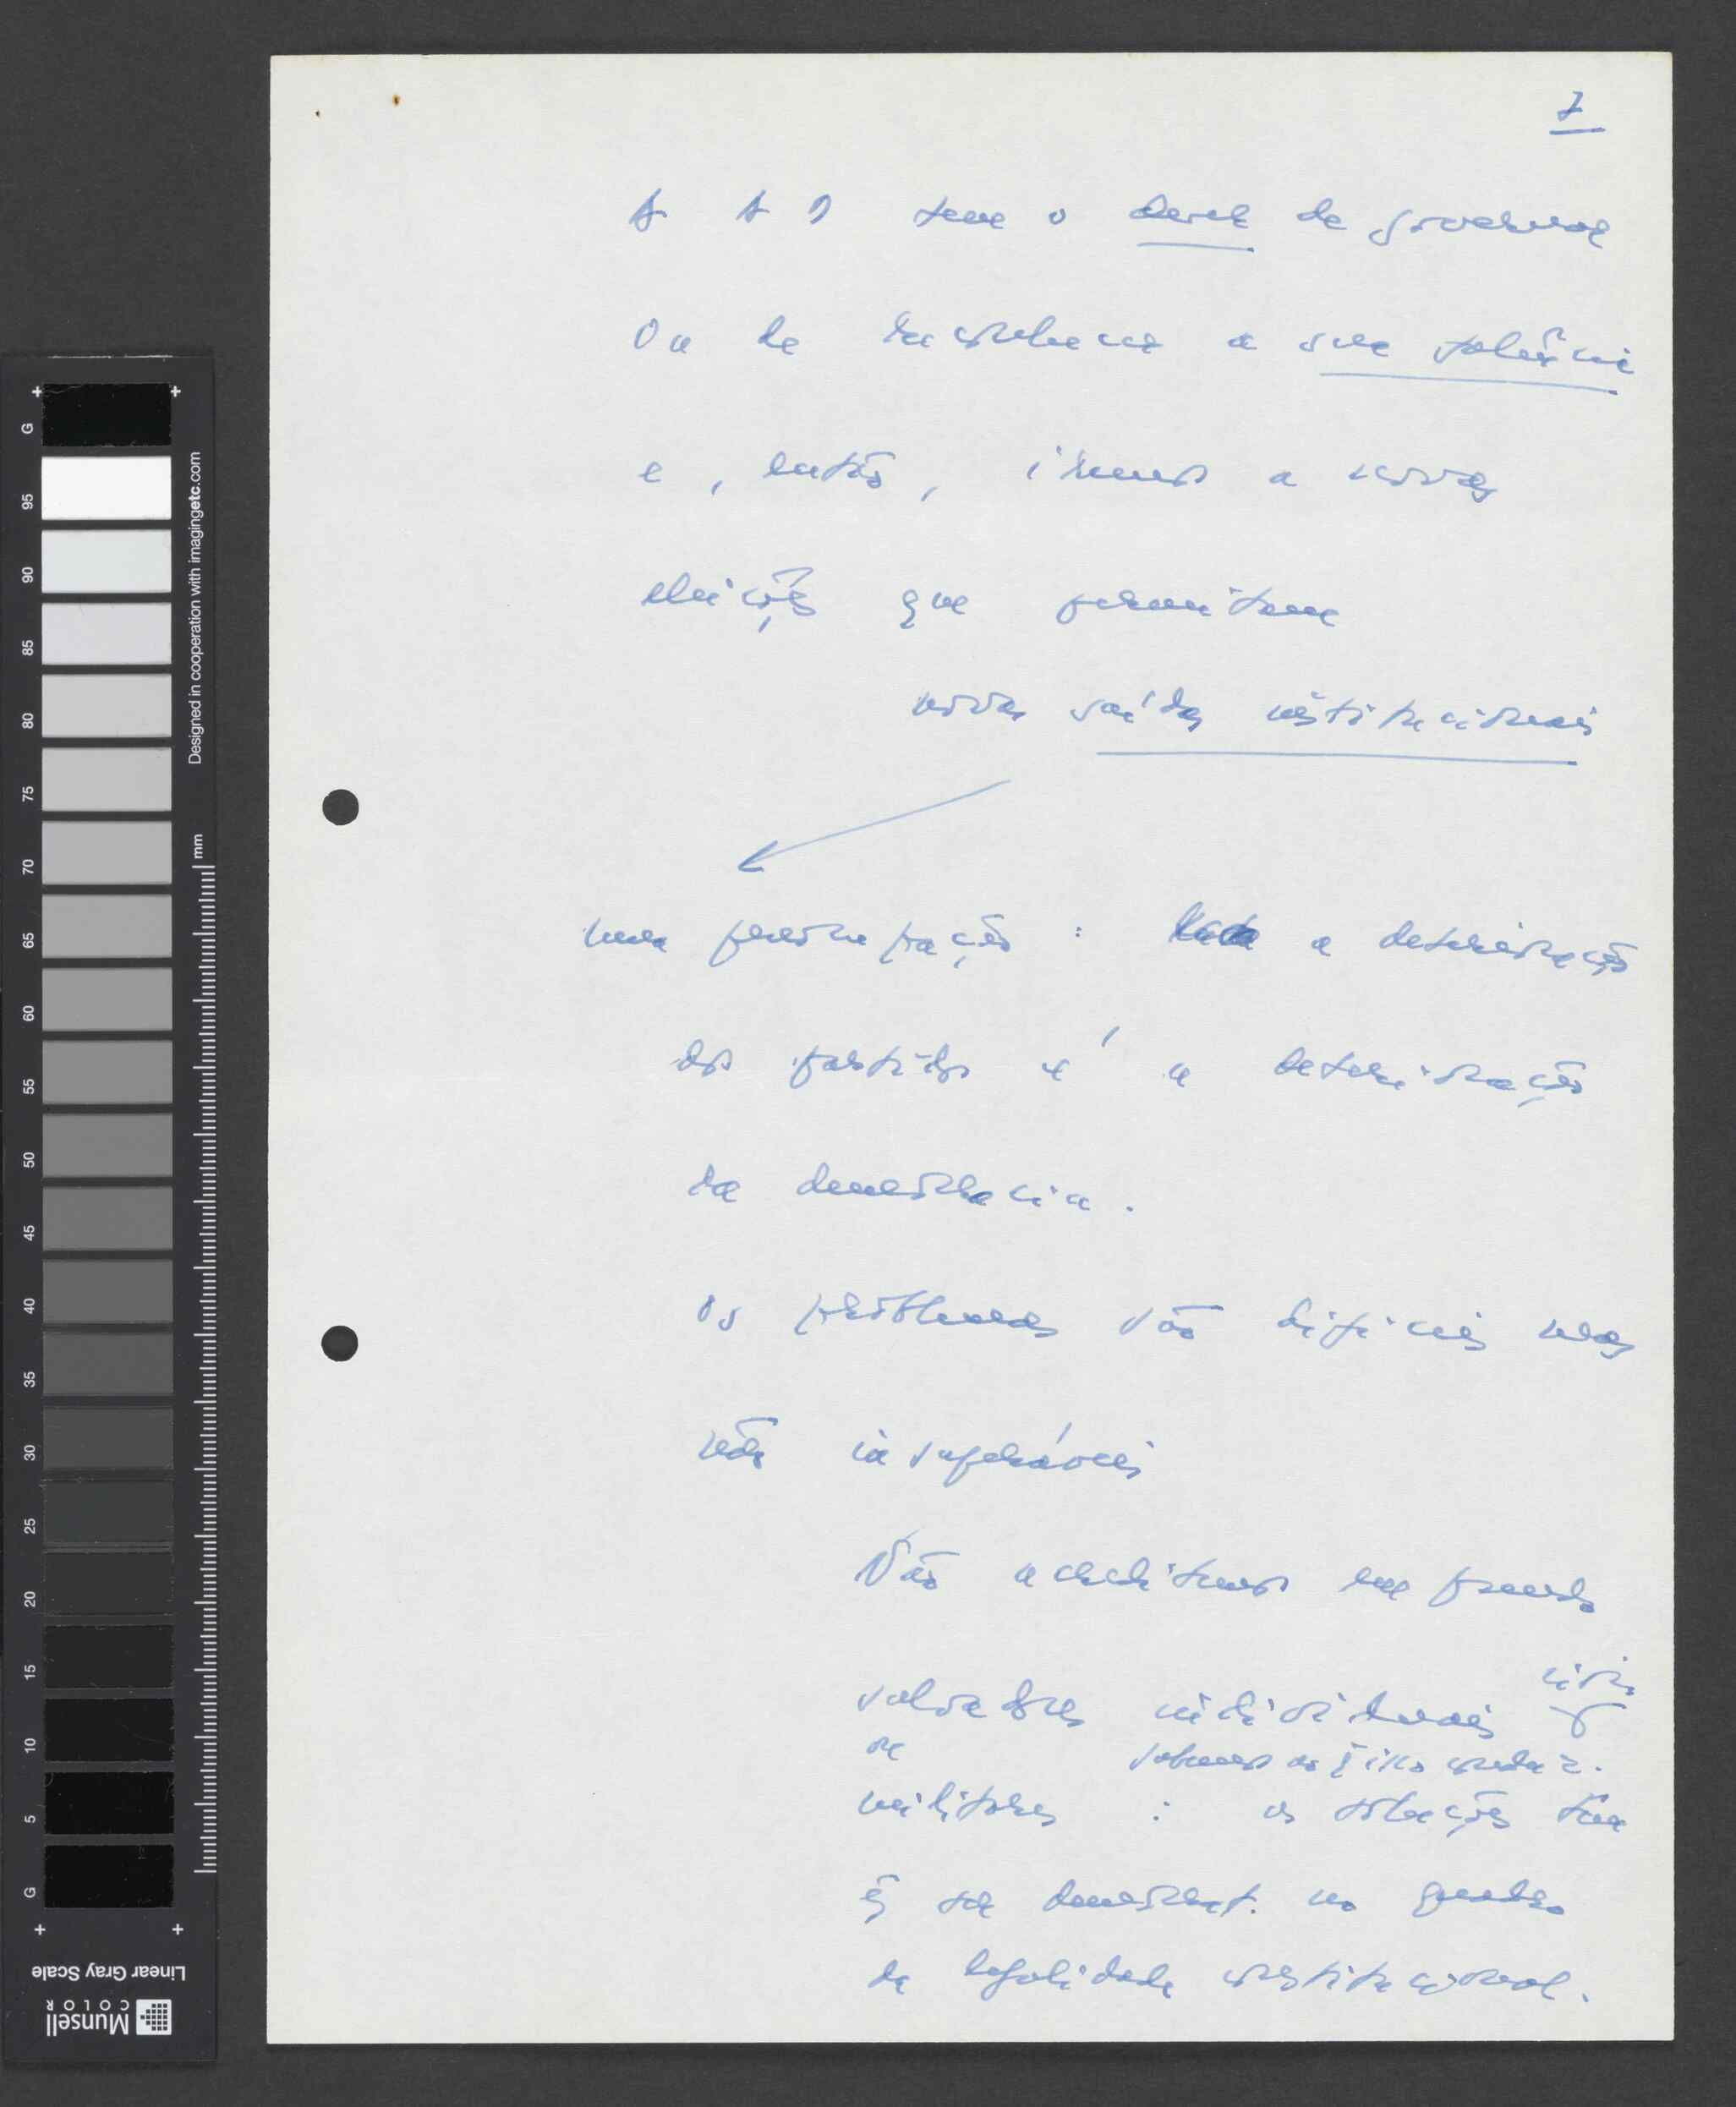 7
A A D tem o dever de governar
Ou de reconhecer a sua falência
e, então, iremos a novas
eleições que permitam
novas saídas institucionais
uma preocupação : a deterioração
dos partidos é a deterioração
da democracia.
Os problemas são difíceis mas
não insuperáveis
Não acreditamos em
salvadores individuais civis
ou sabemos ao q isso conduz.
militares : as soluções têm
q ser democrat. no quadro
da legalidade constitucional.
G
95
90
85
80
75
70
65
60
55
50
45
40
35
30
25
20
15
10
5
G
mm
Designed in cooperation with imagingetc.com
Linear Gray Scale
Munsell
COLOR